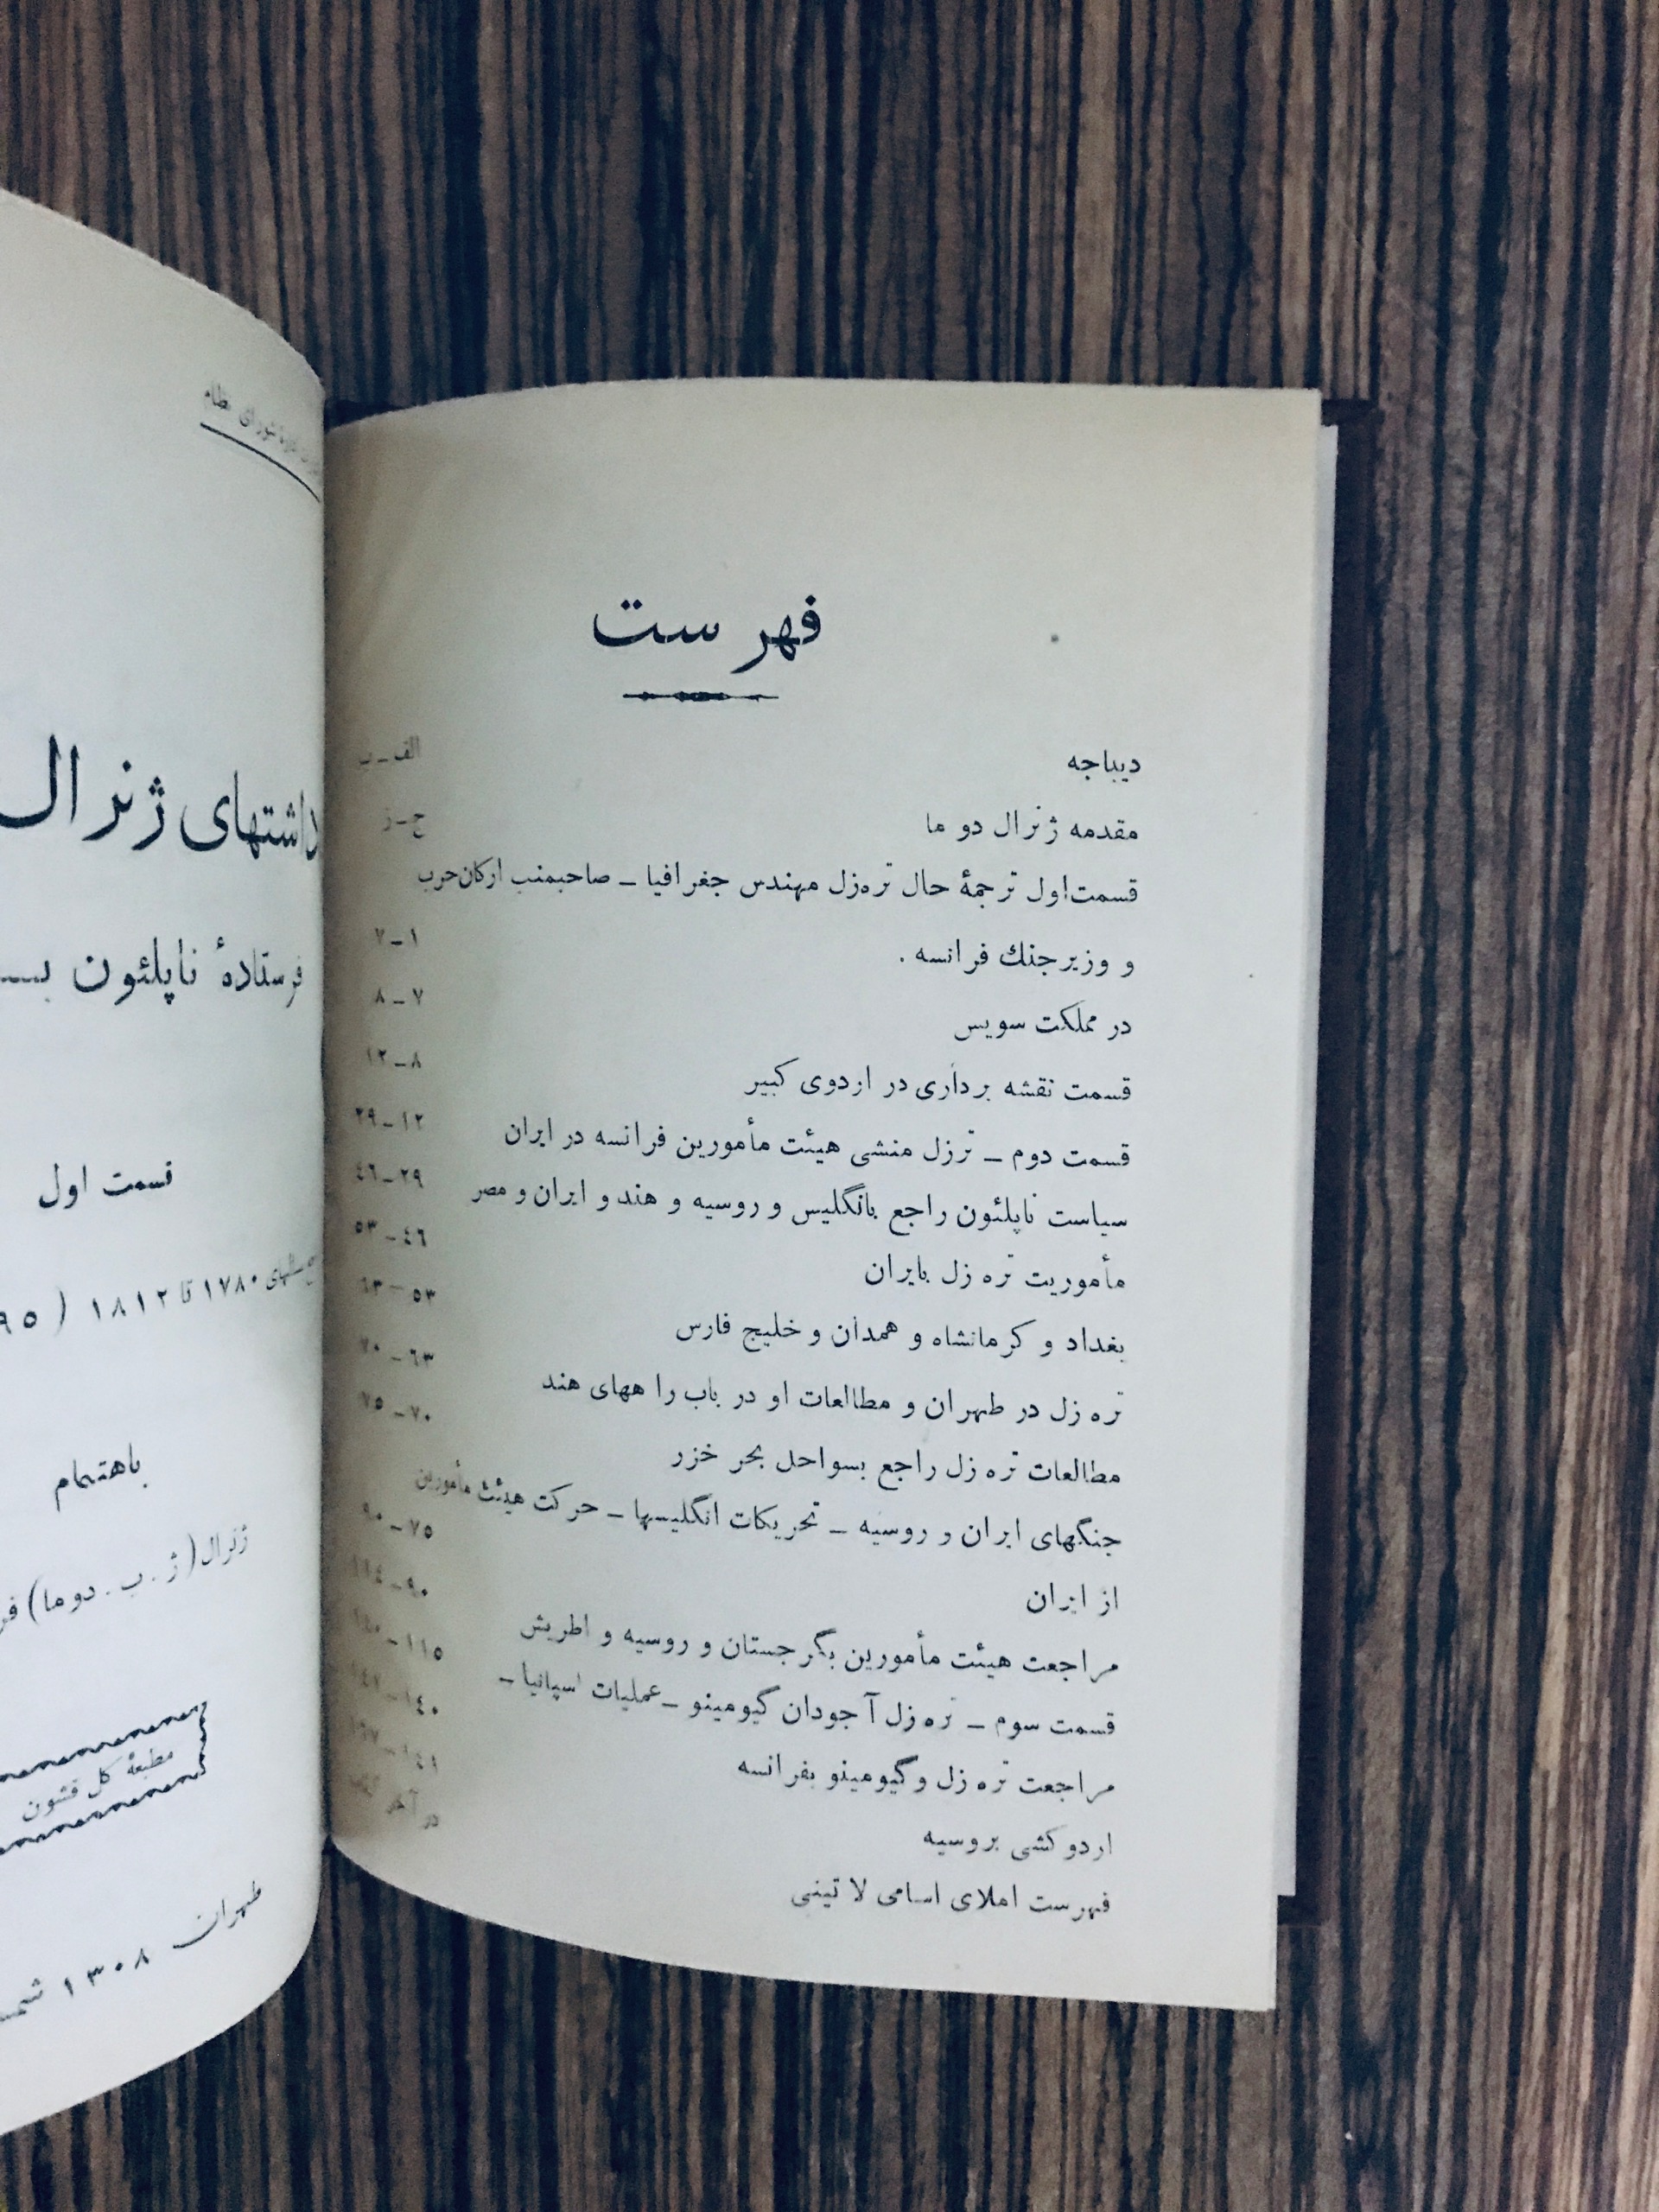 شورای نظام
داشتهای ژنرال
فرستادهٔ ناپلئون بـ
قسمت اول
۱۷۸۰ تا ۱۸۱۲ (
باهتمام
ژنرال (ژ. ب. دوما)
مطبعهٔ کل قشون
طهران ۱۳۰۸
فهرست
دیباجه الف ـ ب
مقدمه ژنرال دو ما ج ـ ز
قسمت اول ترجمهٔ حال تره‌زل مهندس جغرافیا ـ صاحبمنصب ارکان‌حرب
و وزیر جنك فرانسه . ۱ـ۷
در مملکت سویس ۷ـ۸
قسمت نقشه برداری در اردوی کبیر ۸ـ۱۲
قسمت دوم ـ ترزل منشی هیئت مأمورین فرانسه در ایران ۱۲ـ۲۹
سیاست ناپلئون راجع بانگلیس و روسیه و هند و ایران و مصر ۲۹ـ٤٦
مأموریت تره زل بایران ٤٦ـ۵۳
بغداد و کرمانشاه و همدان و خلیج فارس ۵۳ـ٦۳
تره زل در طهران و مطالعات او در باب را ههای هند ٦۳ـ۷۰
مطالعات تره زل راجع بسواحل بحر خزر ۷۰ـ۷۵
جنگهای ایران و روسیه ـ تحریکات انگلیسها ـ حرکت هیئت مأمورین
از ایران ۷۵ـ۹۰
مراجعت هیئت مأمورین بگرجستان و روسیه و اطریش ۹۰ـ۱۱٤
قسمت سوم ـ تره زل آجودان گیومینو ـ عملیات اسپانیا ـ ۱۱۵
مراجعت تره زل و گیومینو بفرانسه ۱٤۰
اردو کشی بروسیه
فهرست املای اسامی لا تینی در آخر